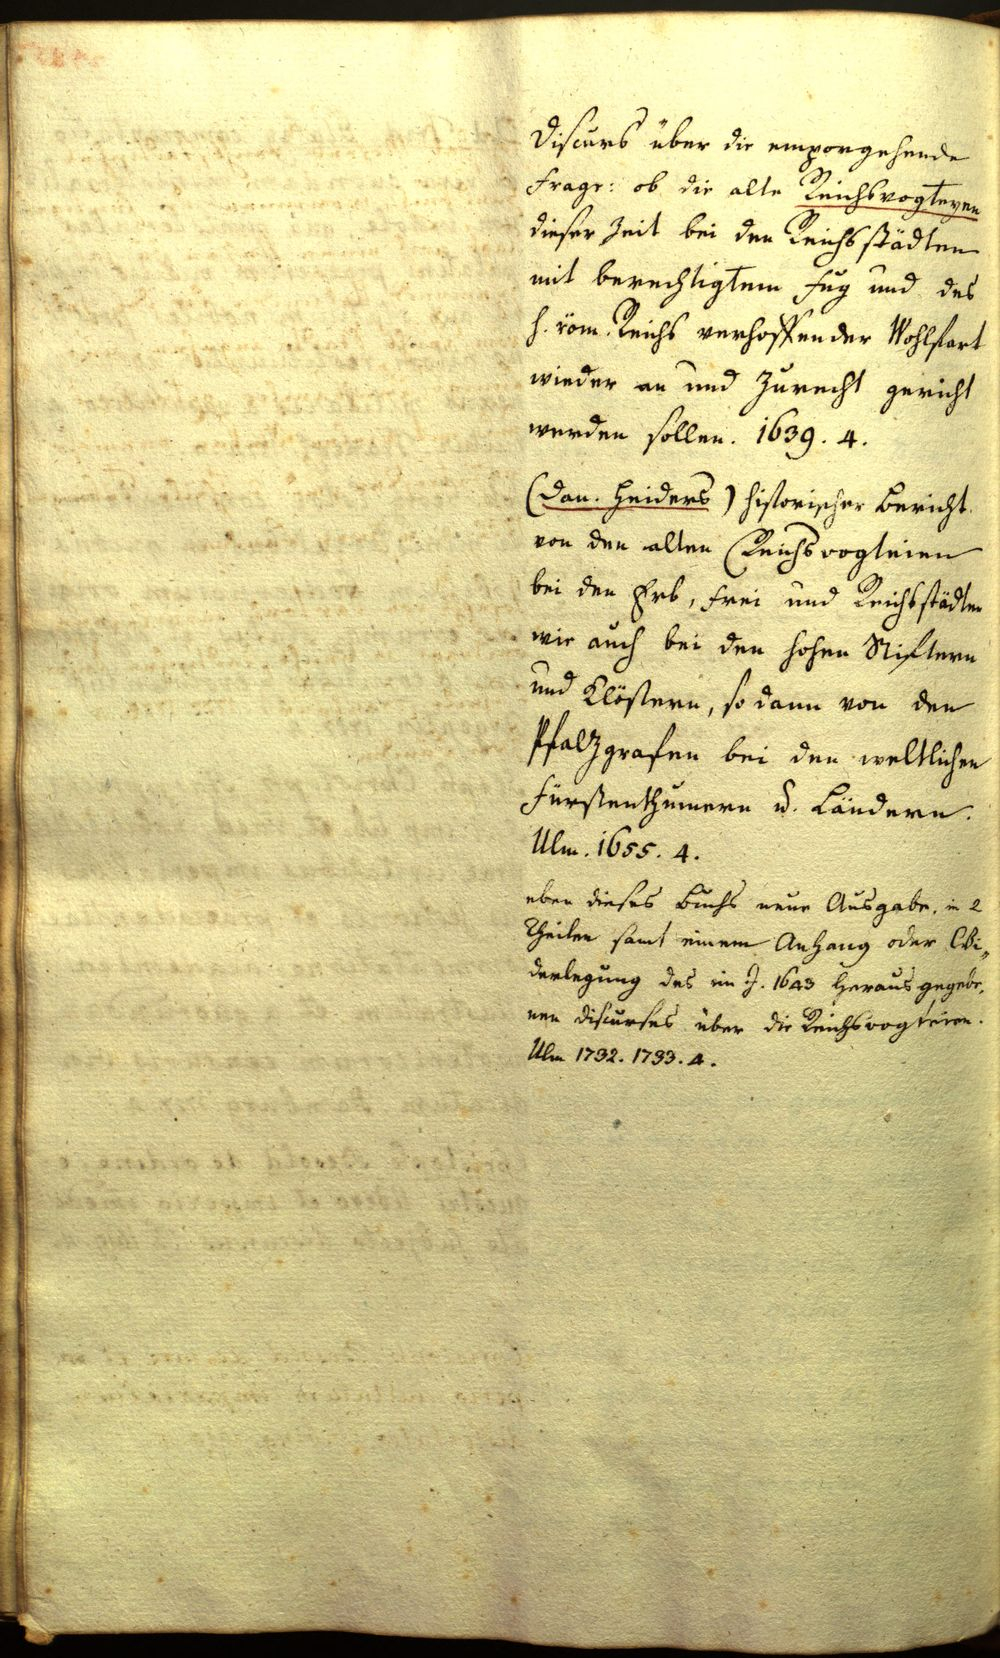 Discurs über die emporgehende
Frage: ob die alte Reichsvogteyen
dieser Zeit bei den Reichsstädten
mit berechtigtem Fug und des
h. röm. Reichs verhoffender Wohlfart
wieder an und zurecht gericht
werden sollen. 1639. 4.
(Dan. Heiders) historischer Bericht
von den alten Reichsvogteien
bei den Erb, Frei und Reichsstädten
wie auch bei den hohen Stiftern
und Klöstern, so dann von den
Pfalzgrafen bei den weltlichen
Fürstenthumern u. Ländern.
Ulm. 1655. 4.
eben dieses Buchs neue Ausgabe, in 2
Theilen samt einem Anhang oder Wi„
derlegung des im J. 1643 herausgegebe„
nen Discurses über die Reichsvogteien.
Ulm 1732. 1733. 4.